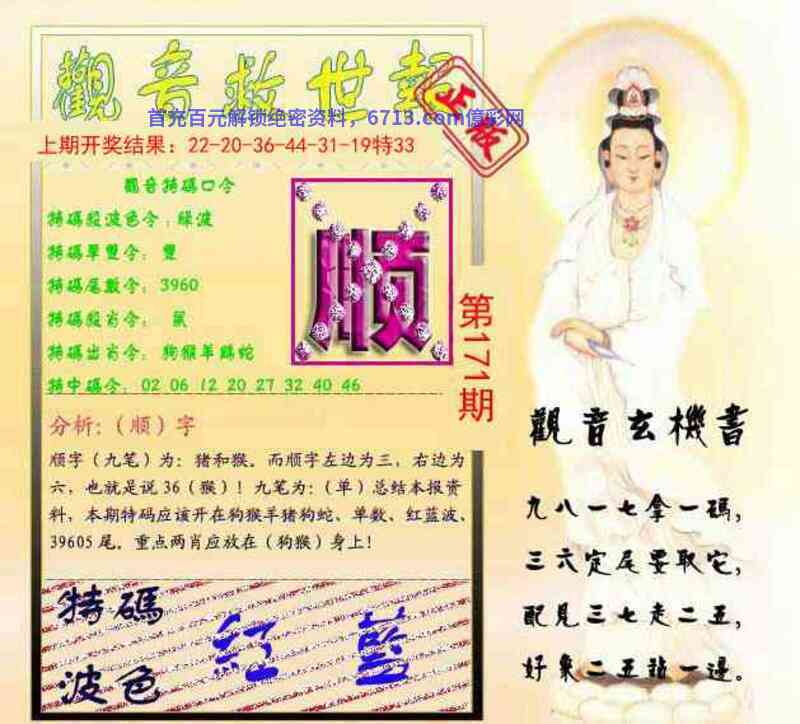 觀音救世報
正版
首充百元解锁绝密资料，6713.com億彩网
上期开奖结果：22-20-36-44-31-19特33
觀音特碼口令
特碼殺波色令：綠波
特碼單雙令： 雙
特碼尾數令：3960
特碼殺肖令： 鼠
特碼出肖令： 狗猴羊鷄蛇
特中碼令：02 06 12 20 27 32 40 46
顺
第171期
分析:（顺）字
顺字（九笔）为：猪和猴。而顺字左边为三，右边为
六，也就是说36（猴）！九笔为：（单）总结本报资
料，本期特码应该开在狗猴羊猪狗蛇、单数、红蓝波、
39605尾。重点两肖应放在（狗猴）身上！
特碼
波色
紅 藍
觀音玄機書
九八一七拿一碼，
三六定尾要取它，
配見三七走二五，
好象二五站一邊。